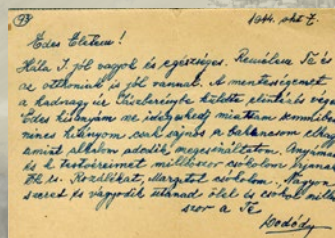 93
1944. okt 7.
Édes Életem!
Hála I. jól vagyok és egészséges. Remélem Te és
az otthoniak is jól vannak. A mentességemet
a hadnagy úr küldte
Édes kisanyám ne idegeskedj miattam semmiben
nincs hiányom csak sajnos a bakancsom
amint alkalom adódik megcsináltatom. Anyámat
és k. testvéreimet milliószor csókolom
Rozáliékat, csókolom. Nagyon
szeret és vágyódik utánad ölel és csókol
szor a Te
Dodód